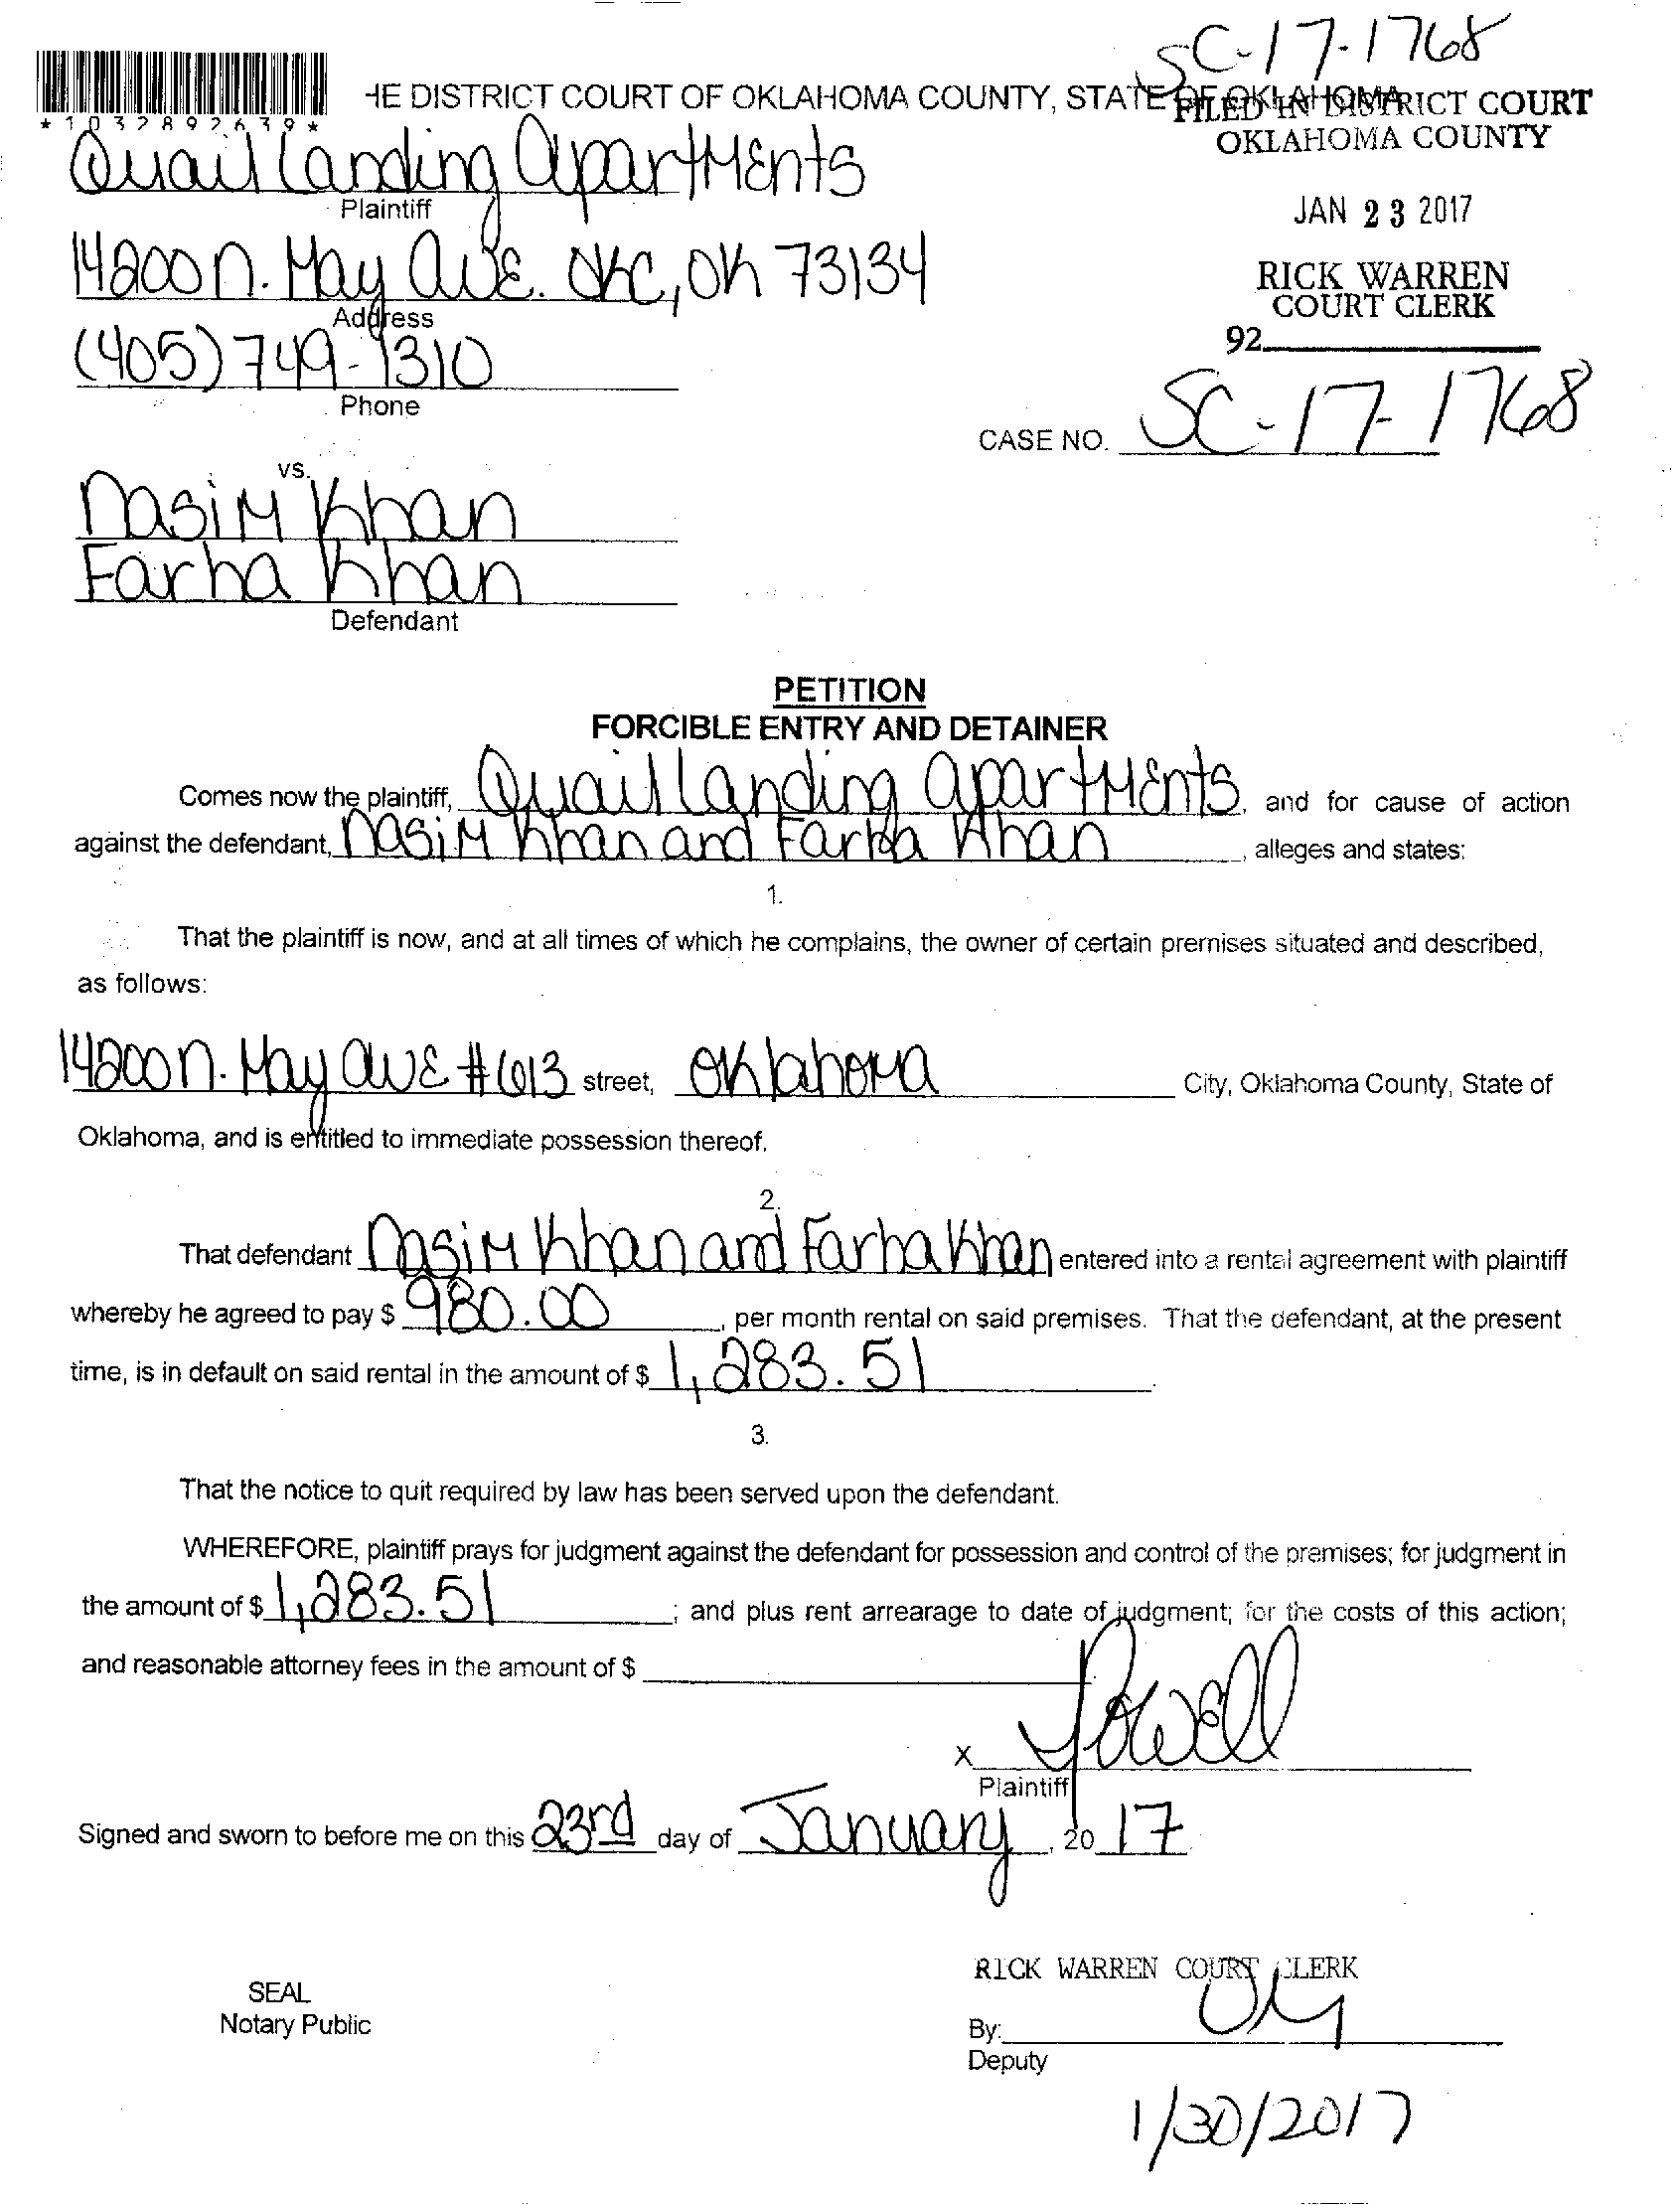 SC-17-1768
HE DISTRICT COURT OF OKLAHOMA COUNTY, STATE OF OKLAHOMA
FILED IN DISTRICT COURT
OKLAHOMA COUNTY
*1032892639*
Quail Landing Apartments
Plaintiff
JAN 23 2017
14200 N. May Ave. OKC, OK 73134
Address
RICK WARREN
COURT CLERK
92
(405) 749-1310
Phone
CASE NO. SC-17-1768
vs.
Nasim Khan
Farha Khan
Defendant
PETITION
FORCIBLE ENTRY AND DETAINER
Comes now the plaintiff, Quail Landing Apartments, and for cause of action
against the defendant, Nasim Khan and Farha Khan, alleges and states:
1.
That the plaintiff is now, and at all times of which he complains, the owner of certain premises situated and described,
as follows:
14200 N. May Ave #613 street, Oklahoma City, Oklahoma County, State of
Oklahoma, and is entitled to immediate possession thereof.
2.
That defendant Nasim Khan and Farha Khan entered into a rental agreement with plaintiff
whereby he agreed to pay $ 980.00, per month rental on said premises. That the defendant, at the present
time, is in default on said rental in the amount of $ 1,283.51.
3.
That the notice to quit required by law has been served upon the defendant.
WHEREFORE, plaintiff prays for judgment against the defendant for possession and control of the premises; for judgment in
the amount of $ 1,283.51; and plus rent arrearage to date of judgment; for the costs of this action;
and reasonable attorney fees in the amount of $
X Powell
Plaintiff
Signed and sworn to before me on this 23rd day of January, 20 17
RICK WARREN COURT CLERK
SEAL
Notary Public
By:
Deputy
1/30/2017